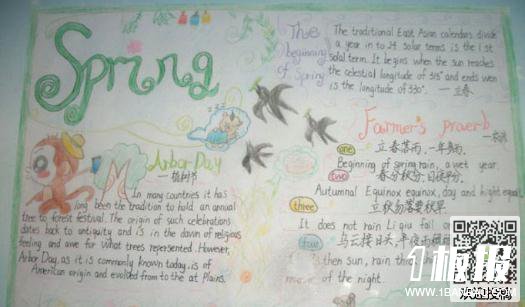 Spring
The beginning of Spring
The traditional East Asian calendars divide
a year in to 24 solar terms is the 1 st
solal term. It begins when the sun reaches
the celestial longitude of 315° and ends wen
is the longitude of 330°. —立春
Arbor Day
—植树节
In many countries it has
long been the tradition to hold an annual
tree to forest festival. The origin of such celebrations
dates back to antiquity and is in the dawn of religious
feeling and awe for what trees represented. However,
Arbor Day, as it is commonly known today, is of
American origin and evolved from to the at Plains.
Farmer's proverb
one 立春落雨,一年多雨,
Beginning of spring rain, a wet year.
two 春分秋分,日夜平分,
Autumnal Equinox equinox, day and night equal.
three 立秋勿落要秋旱
It does not rain Li qiu fail
four 乌云接日头,半夜雨
then sun, rain the
of the night.
板报